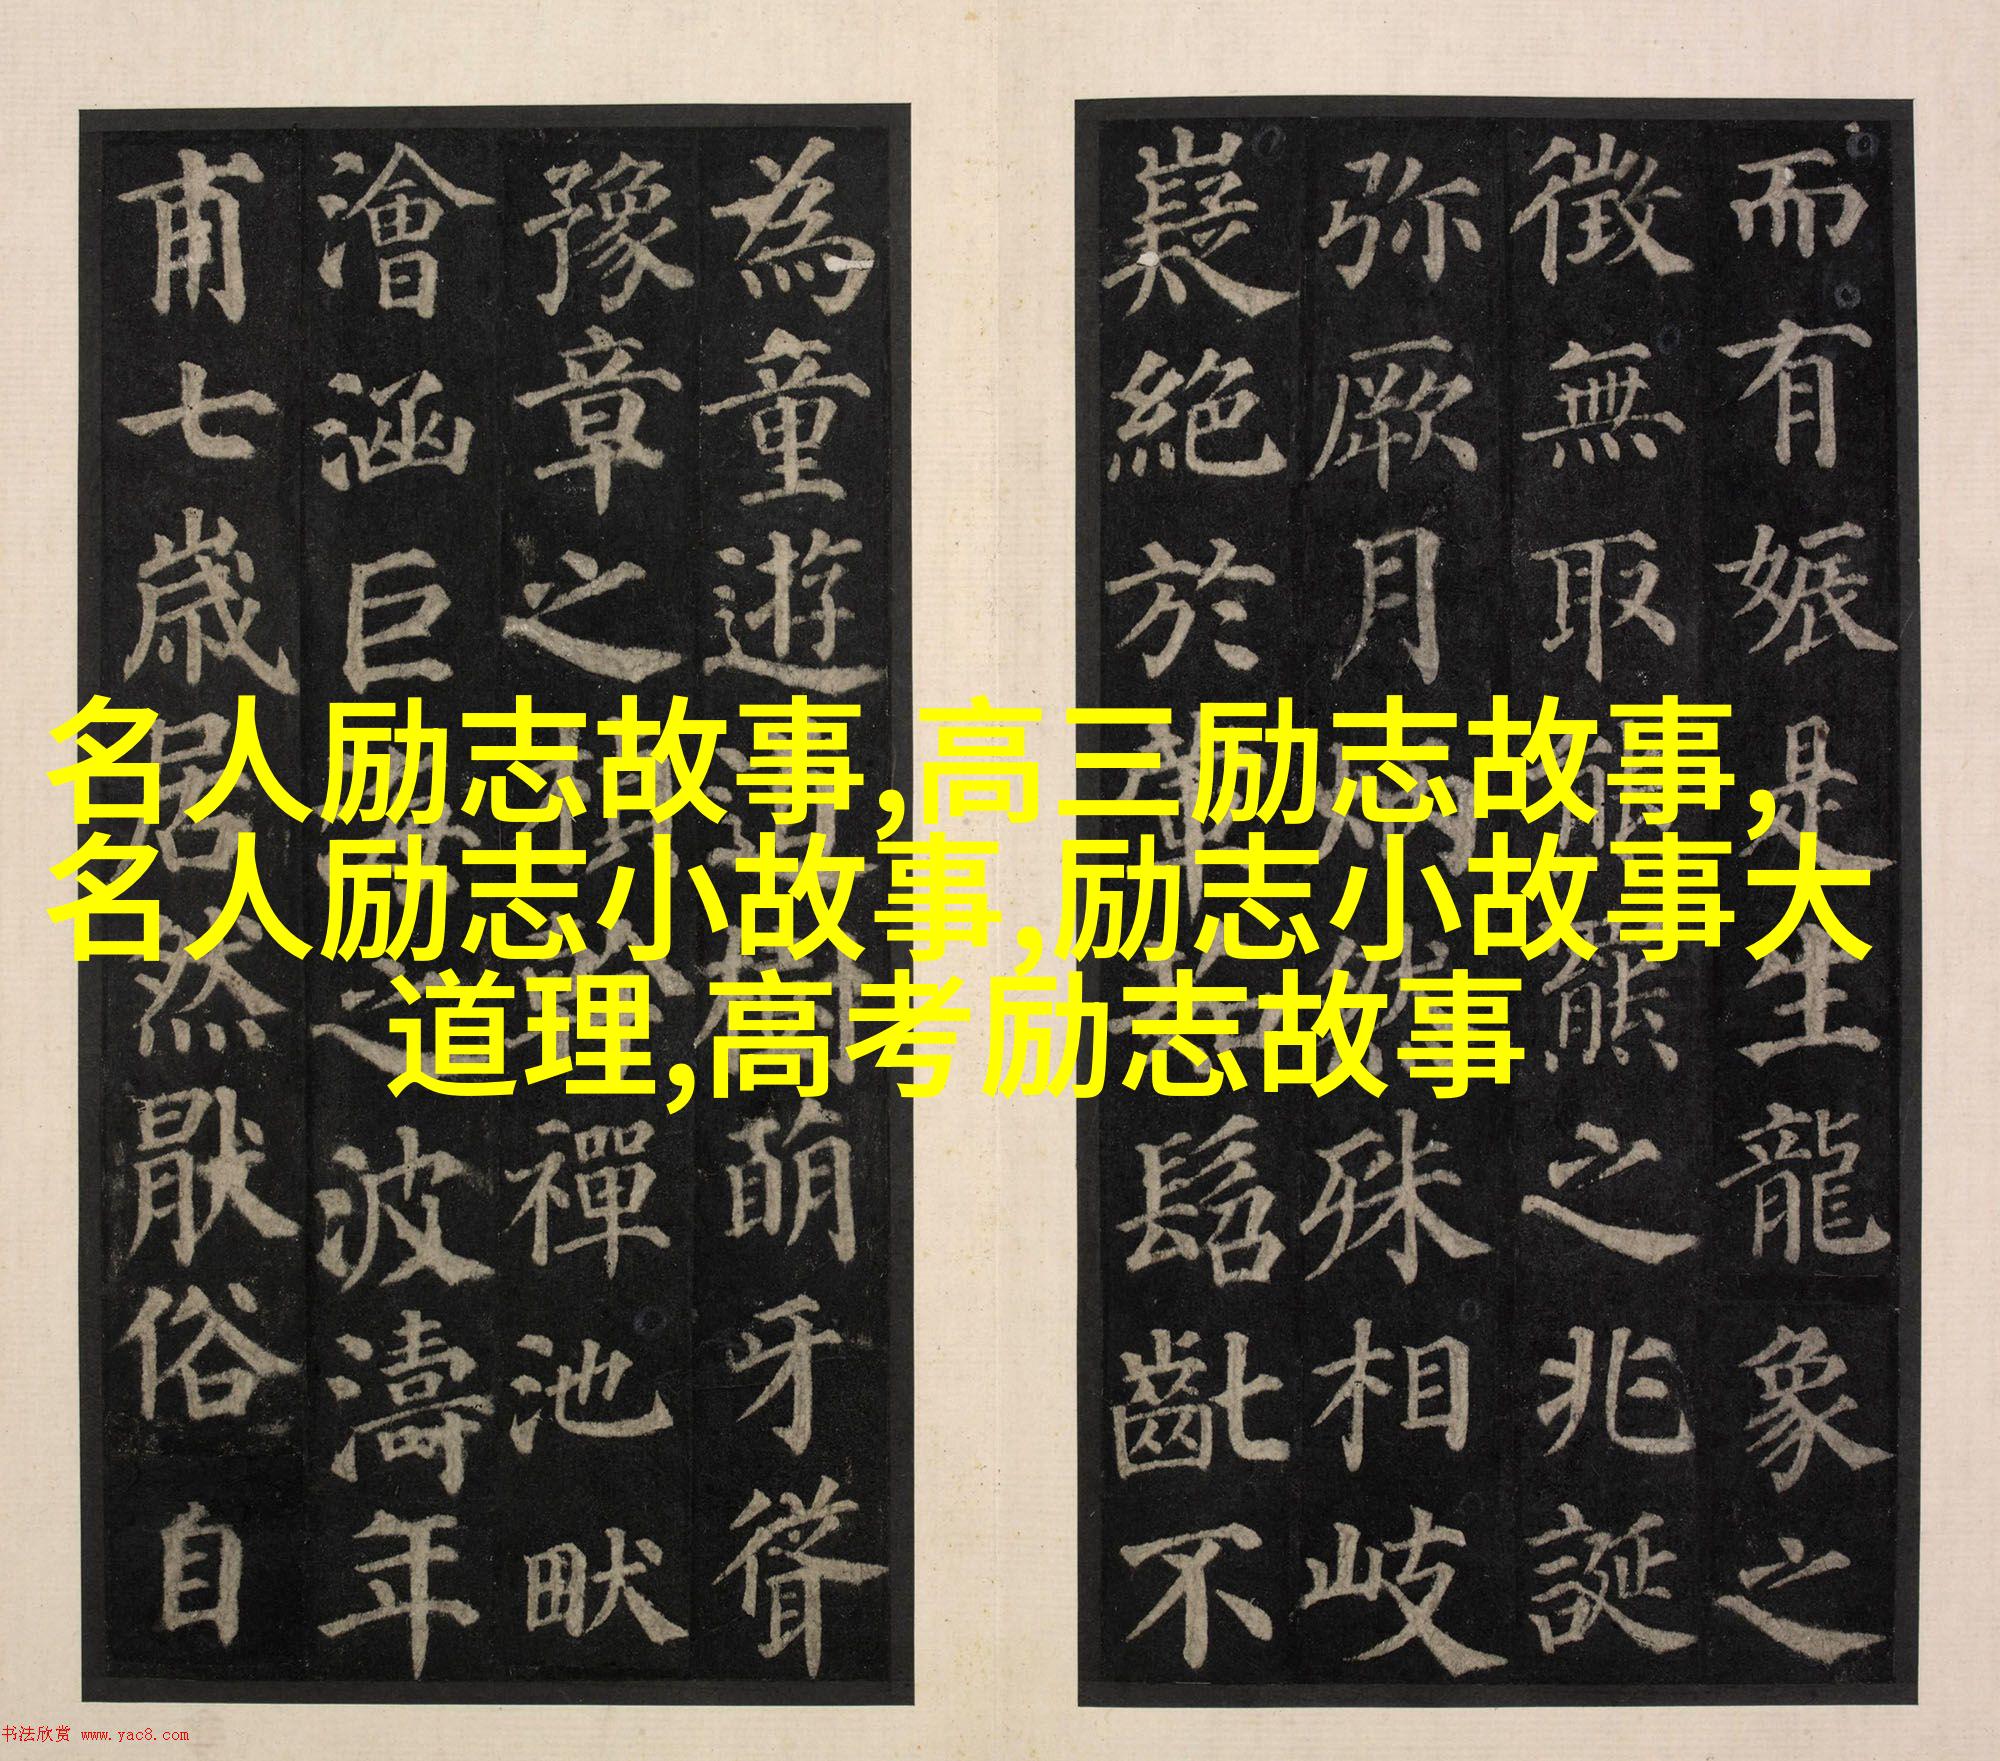 而有娠是生龍象之
徵無取熊羆之兆誕
弥厥月炳然殊相岐
嶷絕於髫齔不
為童遊道樹萌牙聳
豫章之楨幹禪池畎
澮涵巨海之波濤年
甫七歲居然厭俗自
名人励志故事,高三励志故事,
名人励志小故事,励志小故事大
道理,高考励志故事
书法欣赏 www.yac8.com